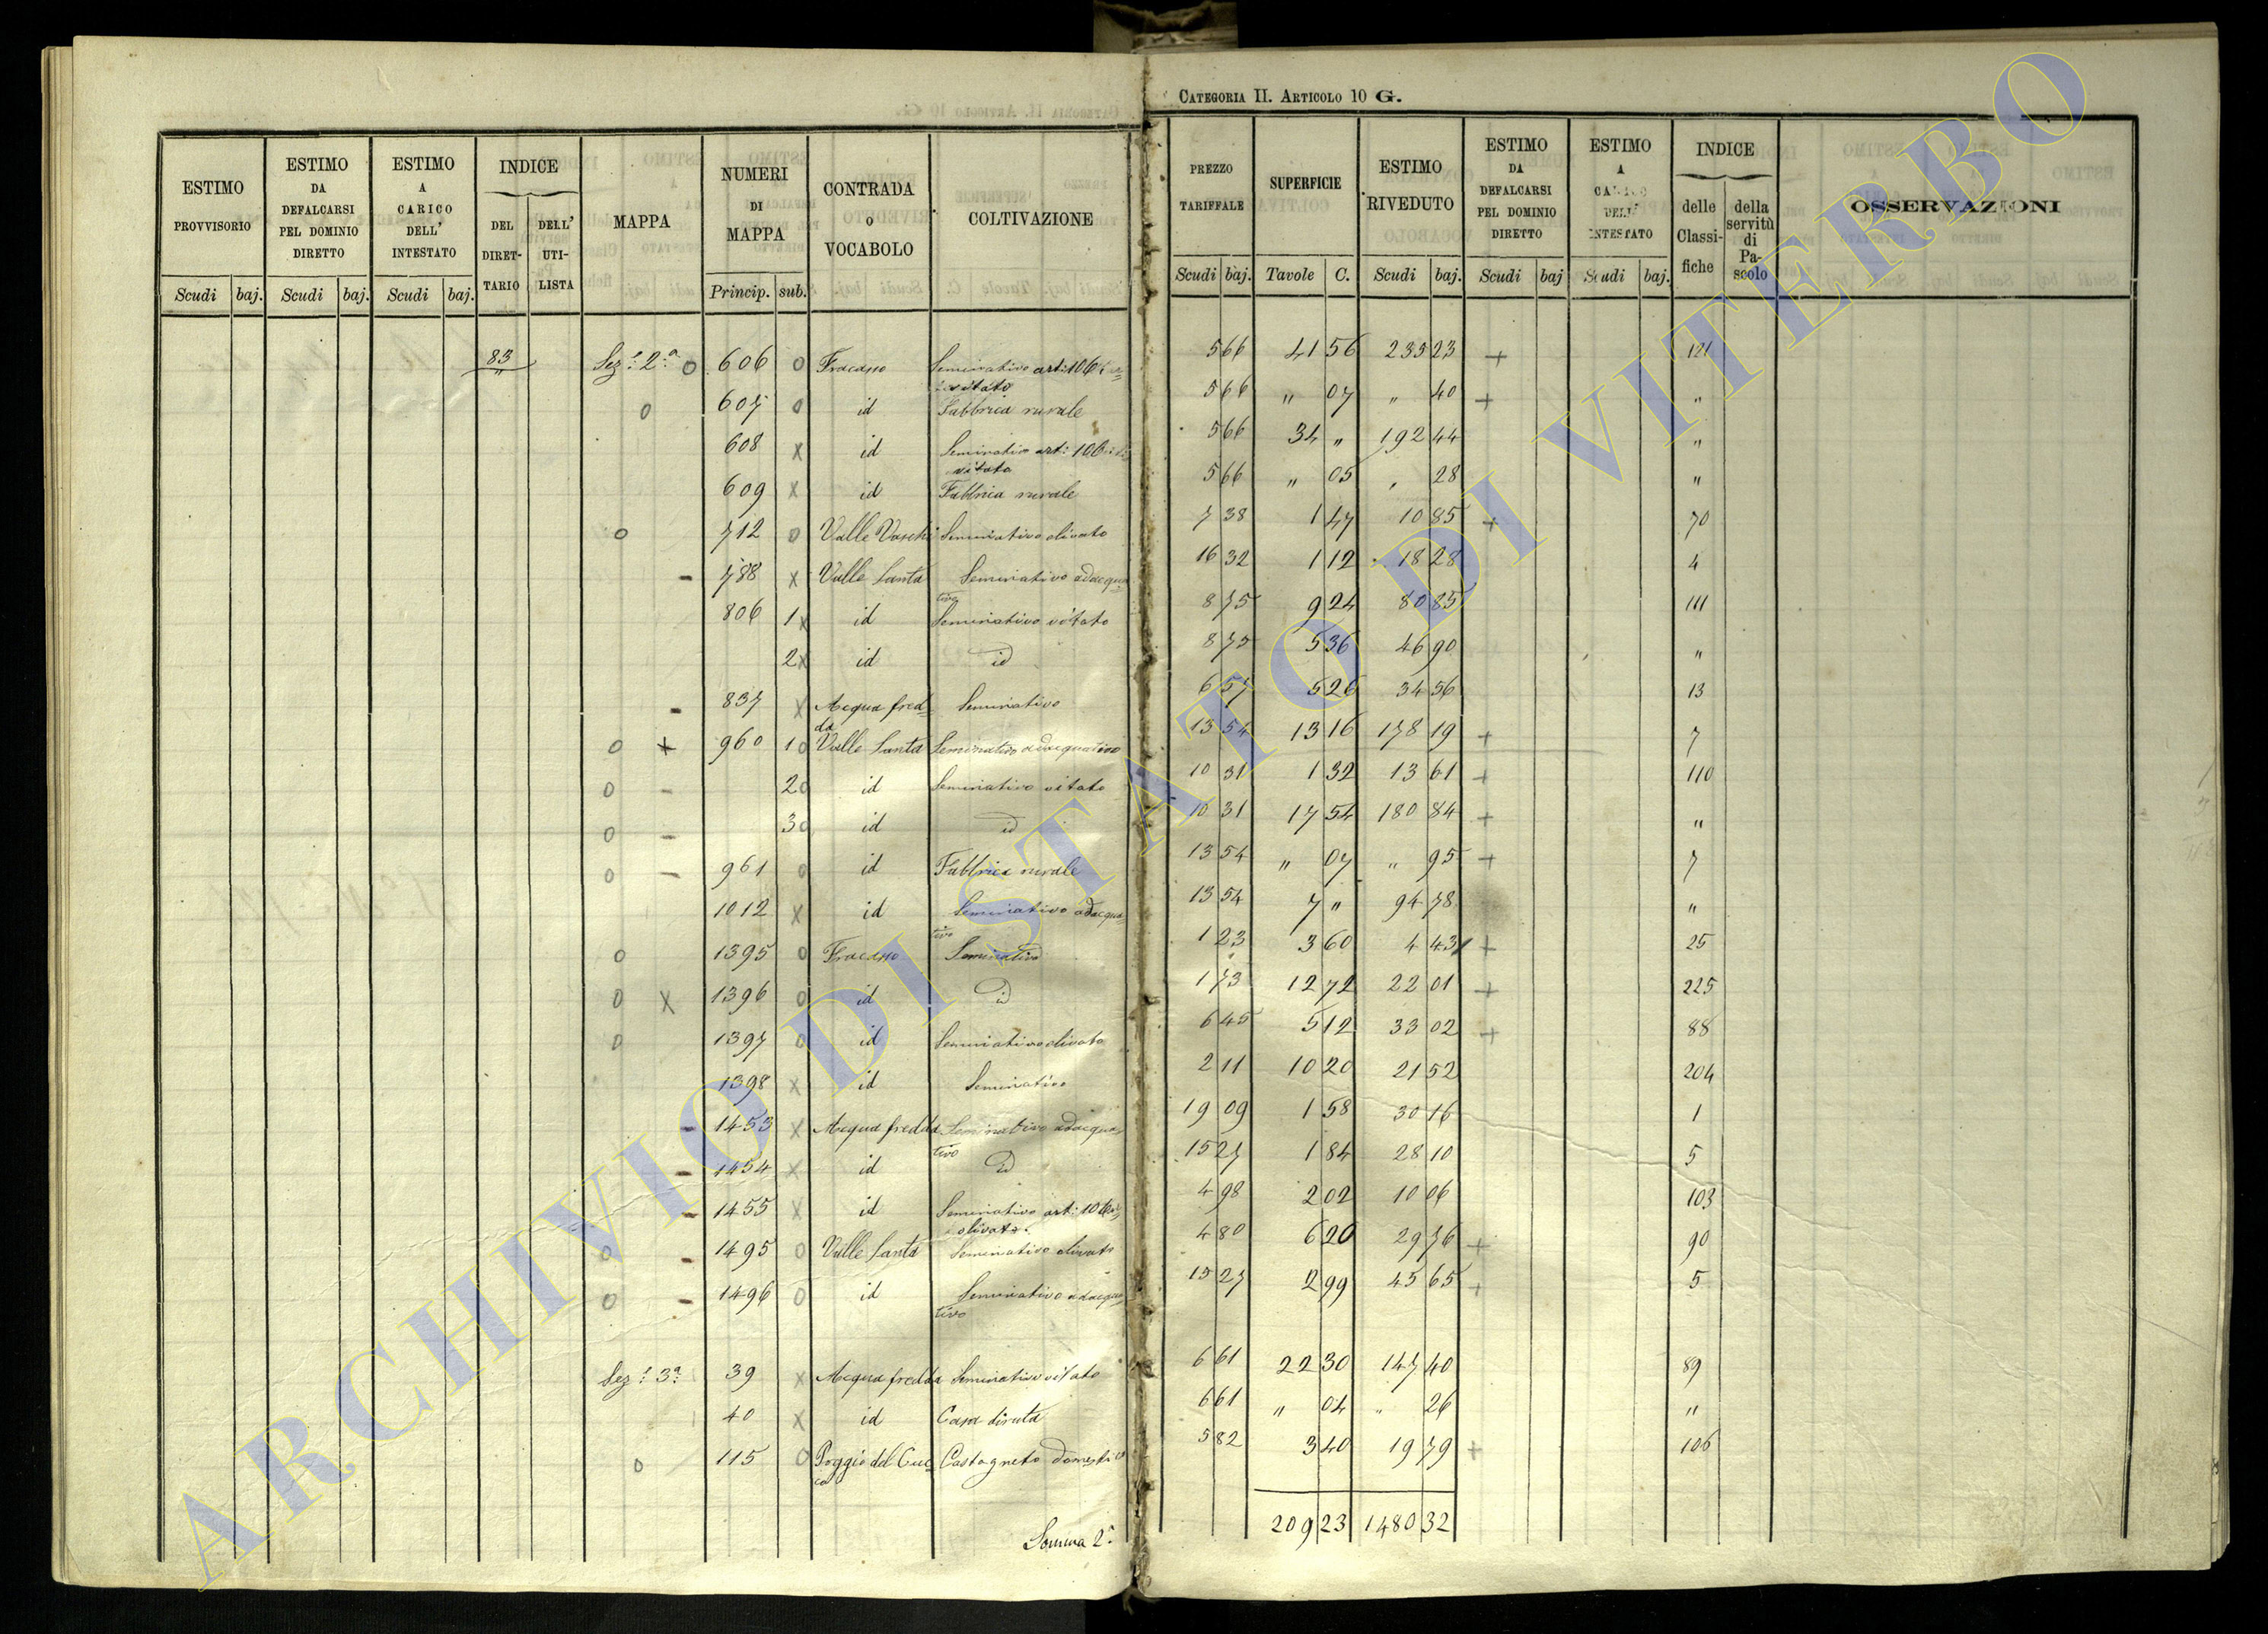 CATEGORIA II. ARTICOLO 10 G.
ESTIMO PROVVISORIO Scudi baj. ESTIMO DA DEFALCARSI PEL DOMINIO DIRETTO Scudi baj. ESTIMO A CARICO DELL' INTESTATO Scudi baj. INDICE DEL DIRETTARIO DELL' UTILISTA MAPPA NUMERI DI MAPPA Princip. sub. CONTRADA O VOCABOLO COLTIVAZIONE
PREZZO TARIFFALE Scudi baj. SUPERFICIE Tavole C. ESTIMO RIVEDUTO Scudi baj. ESTIMO DA DEFALCARSI PEL DOMINIO DIRETTO Scudi baj ESTIMO A CARICO DELL' INTESTATO Scudi baj. INDICE delle Classifiche della servitù di Pascolo OSSERVAZIONI
83 Sez.e 2.a o 606 o Fracasso Seminativo art: 106 vitato 5 66 41 56 235 23 + 121
o 607 o id Fabbrica rurale 5 66 " 07 " 40 + "
608 x id Seminativo art: 106 vitato 5 66 34 " 192 44 "
609 x id Fabbrica rurale 5 66 " 05 " 28 "
o 712 o Valle Vaschi Seminativo olivato 7 38 1 47 10 85 + 70
- 788 x Valle Santa Seminativo adacquativo 16 32 1 12 18 28 4
806 1 x id Seminativo vitato 8 75 9 24 80 85 111
2 x id id 8 75 5 36 46 90 "
- 837 x Acqua fredda Seminativo 6 57 5 26 34 56 13
o + 960 1 o Valle Santa Seminativo adacquativo 13 54 13 16 178 19 + 7
o - 2 o id Seminativo vitato 10 31 1 32 13 61 + 110
o - 3 o id id 10 31 17 54 180 84 + "
o - 961 o id Fabbrica rurale 13 54 " 07 " 95 + 7
1012 x id Seminativo adacquativo 13 54 7 " 94 78 "
o 1395 o Fracasso Seminativo 1 23 3 60 4 43 + 25
o x 1396 o id id 1 73 12 72 22 01 + 225
o 1397 o id Seminativo olivato 6 45 5 12 33 02 + 88
1398 x id Seminativo 2 11 10 20 21 52 204
- 1453 x Acqua fredda Seminativo adacquativo 19 09 1 58 30 16 1
- 1454 x id id 15 27 1 84 28 10 5
- 1455 x id Seminativo art: 106 olivato 4 98 2 02 10 06 103
o - 1495 o Valle Santa Seminativo olivato 4 80 6 20 29 76 + 90
o - 1496 o id Seminativo adacquativo 15 27 2 99 45 65 + 5
Sez.e 3.a 39 x Acqua fredda Seminativo vitato 6 61 22 30 147 40 89
40 x id Casa diruta 6 61 " 04 " 26 "
o 115 o Poggio del Cucco Castagneto domestico 5 82 3 40 19 79 + 106
Somma 2.a 209 23 1480 32
ARCHIVIO DI STATO DI VITERBO